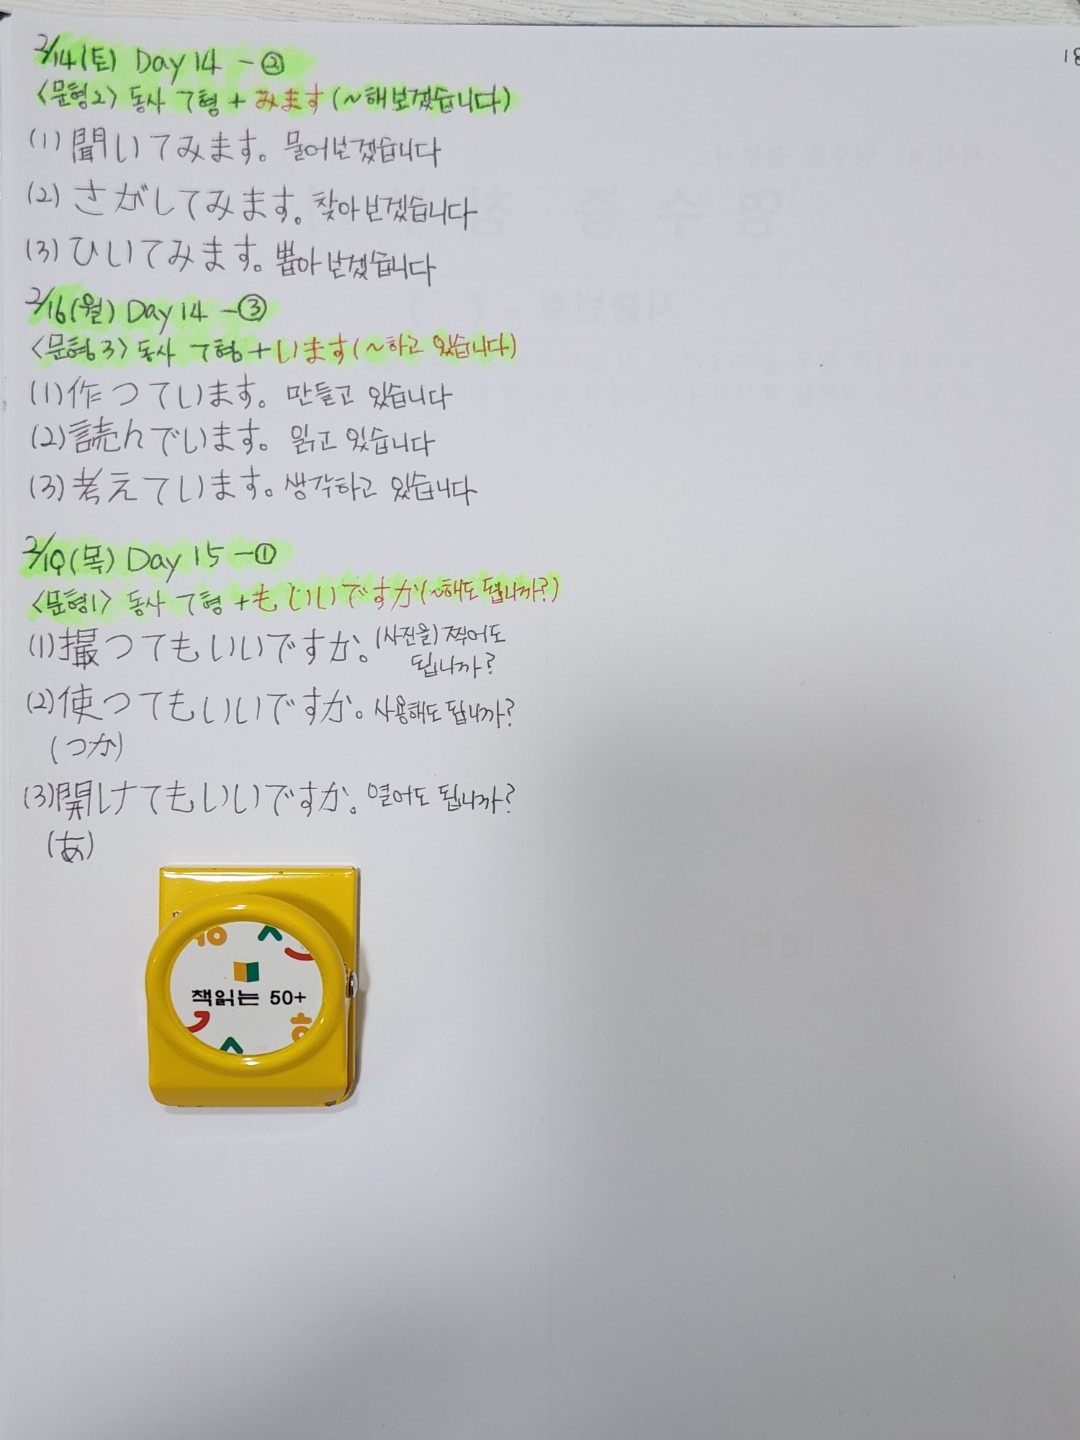 2/14(토) Day 14 - ②
<문형2> 동사 て형 + みます (~해 보겠습니다)
(1) 聞いてみます。 물어보겠습니다
(2) さがしてみます。 찾아보겠습니다
(3) ひいてみます。 뽑아보겠습니다
2/16(월) Day 14 - ③
<문형3> 동사 て형 + います (~하고 있습니다)
(1) 作つています。 만들고 있습니다
(2) 読んでいます。 읽고 있습니다
(3) 考えています。 생각하고 있습니다
2/19(목) Day 15 - ①
<문형1> 동사 て형 + もいいですか (~해도 됩니까?)
(1) 撮つてもいいですか。 (사진을) 찍어도
됩니까?
(2) 使つてもいいですか。 사용해도 됩니까?
(つか)
(3) 開けてもいいですか。 열어도 됩니까?
(あ)
책읽는 50+